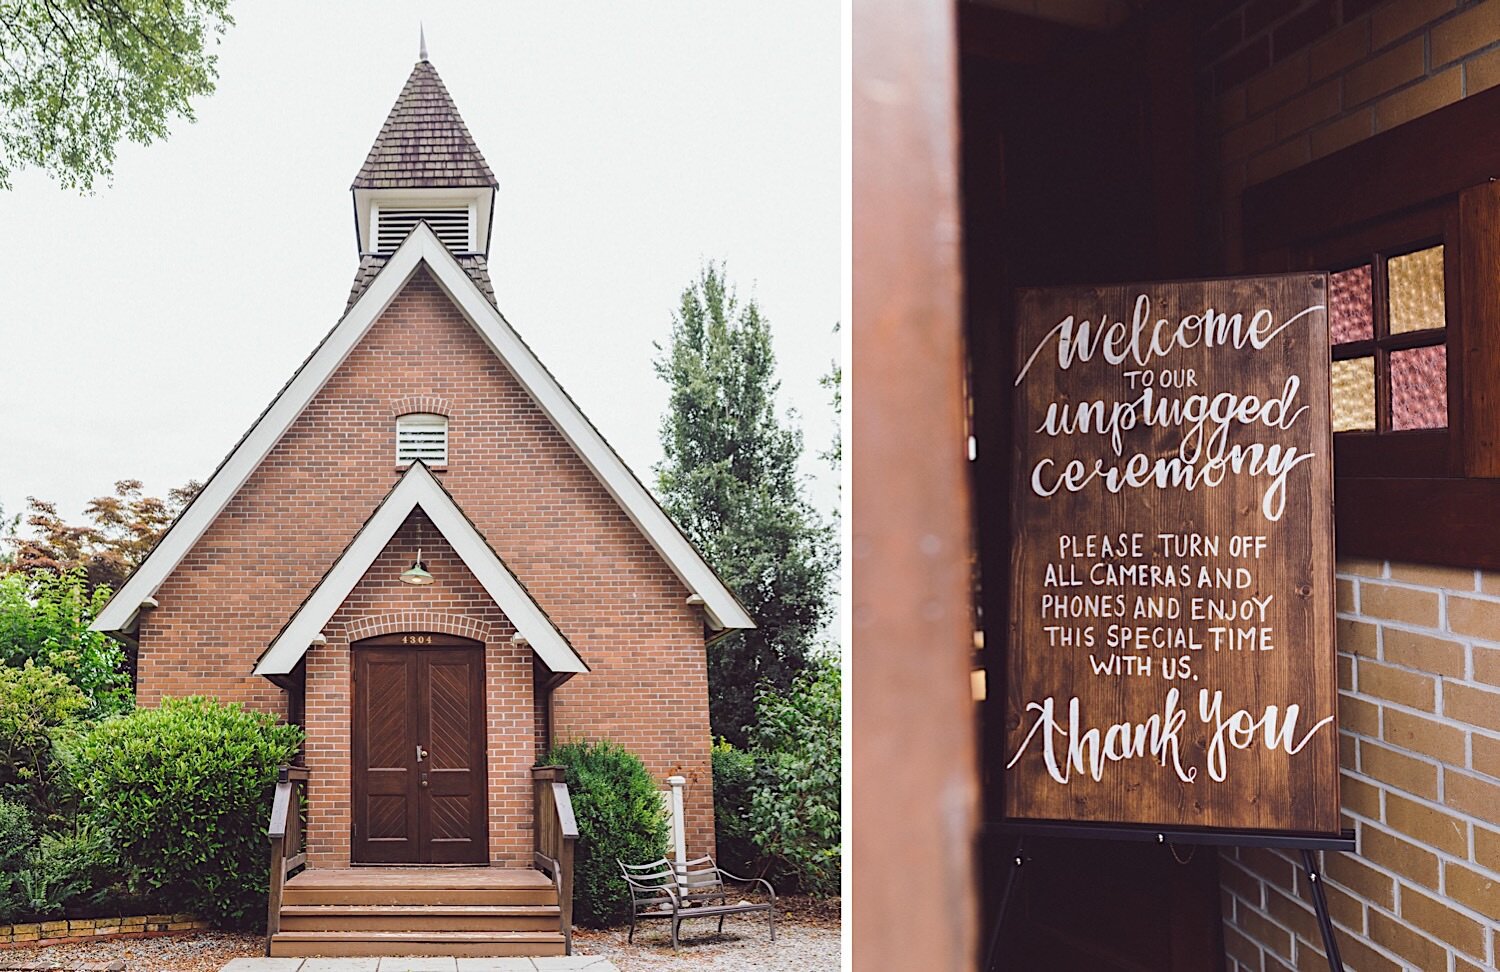 4304
Welcome
TO OUR
unplugged
ceremony
PLEASE TURN OFF
ALL CAMERAS AND
PHONES AND ENJOY
THIS SPECIAL TIME
WITH US.
Thank You